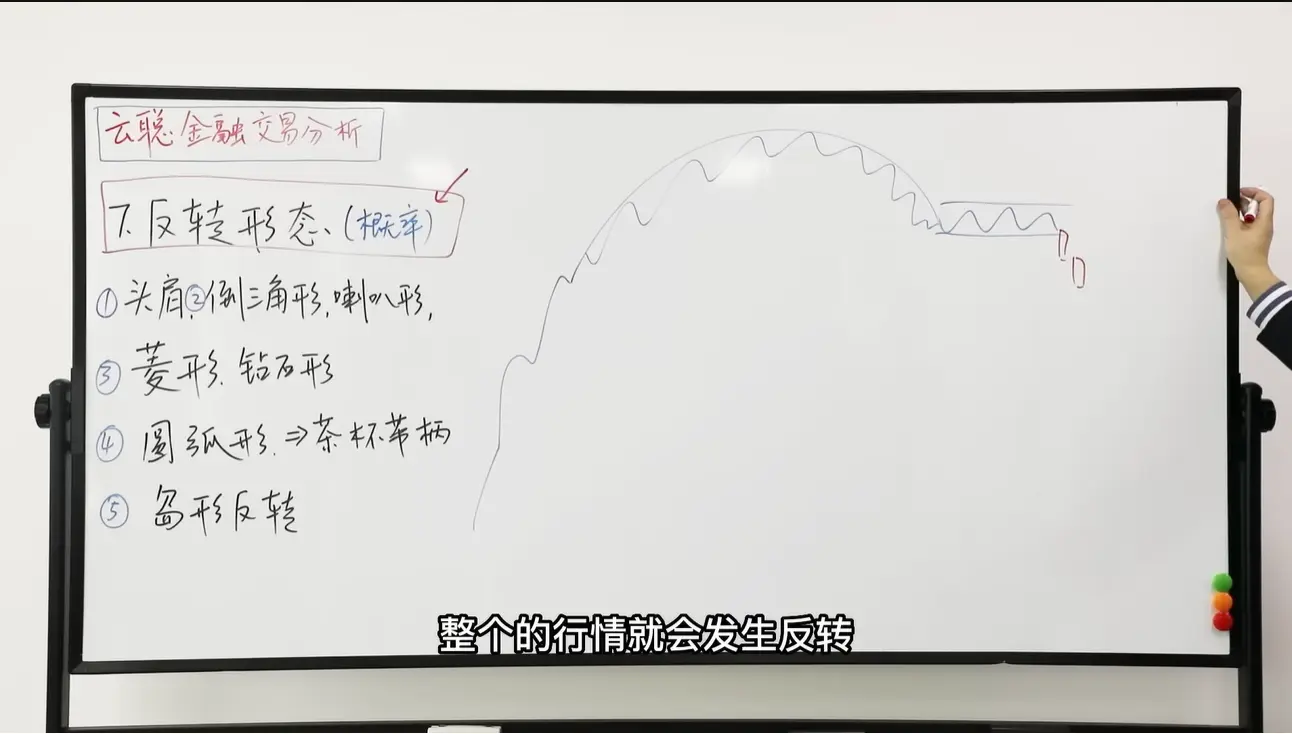 云聪金融交易分析
7.反转形态、(概率)
①头肩,②倒三角形,喇叭形,
③菱形.钻石形
④圆弧形.⇒茶杯带柄
⑤岛形反转
整个的行情就会发生反转